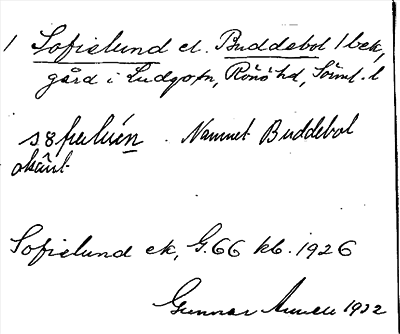 1 Sofielund el. Buddebol 1 bek,
gård i Ludgo sn, Rönö hd, Söml. l
. Namnet Buddebol
okänt
Sofielund ek, G.66 kb. 1926
Gunnar 1922